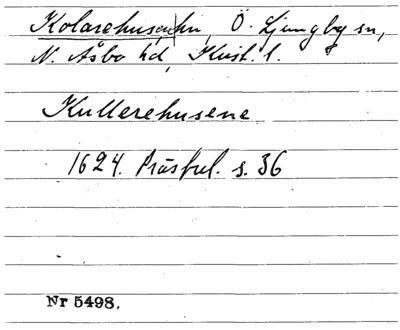 Kolarehusen, hn, Ö. Ljungby sn,
N. Åsbo hd, Krist. l.
Kullerehusene
1624. Präsbul. s. 36
Nr 5498.